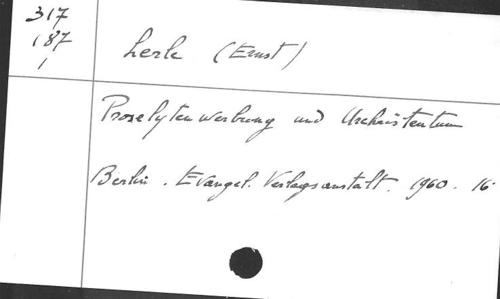 317
187
1
Lerle (Ernst)
Proselytenwerbung und Urchristentum
Berlin. Evangel. Verlagsanstalt. 1960. 16.